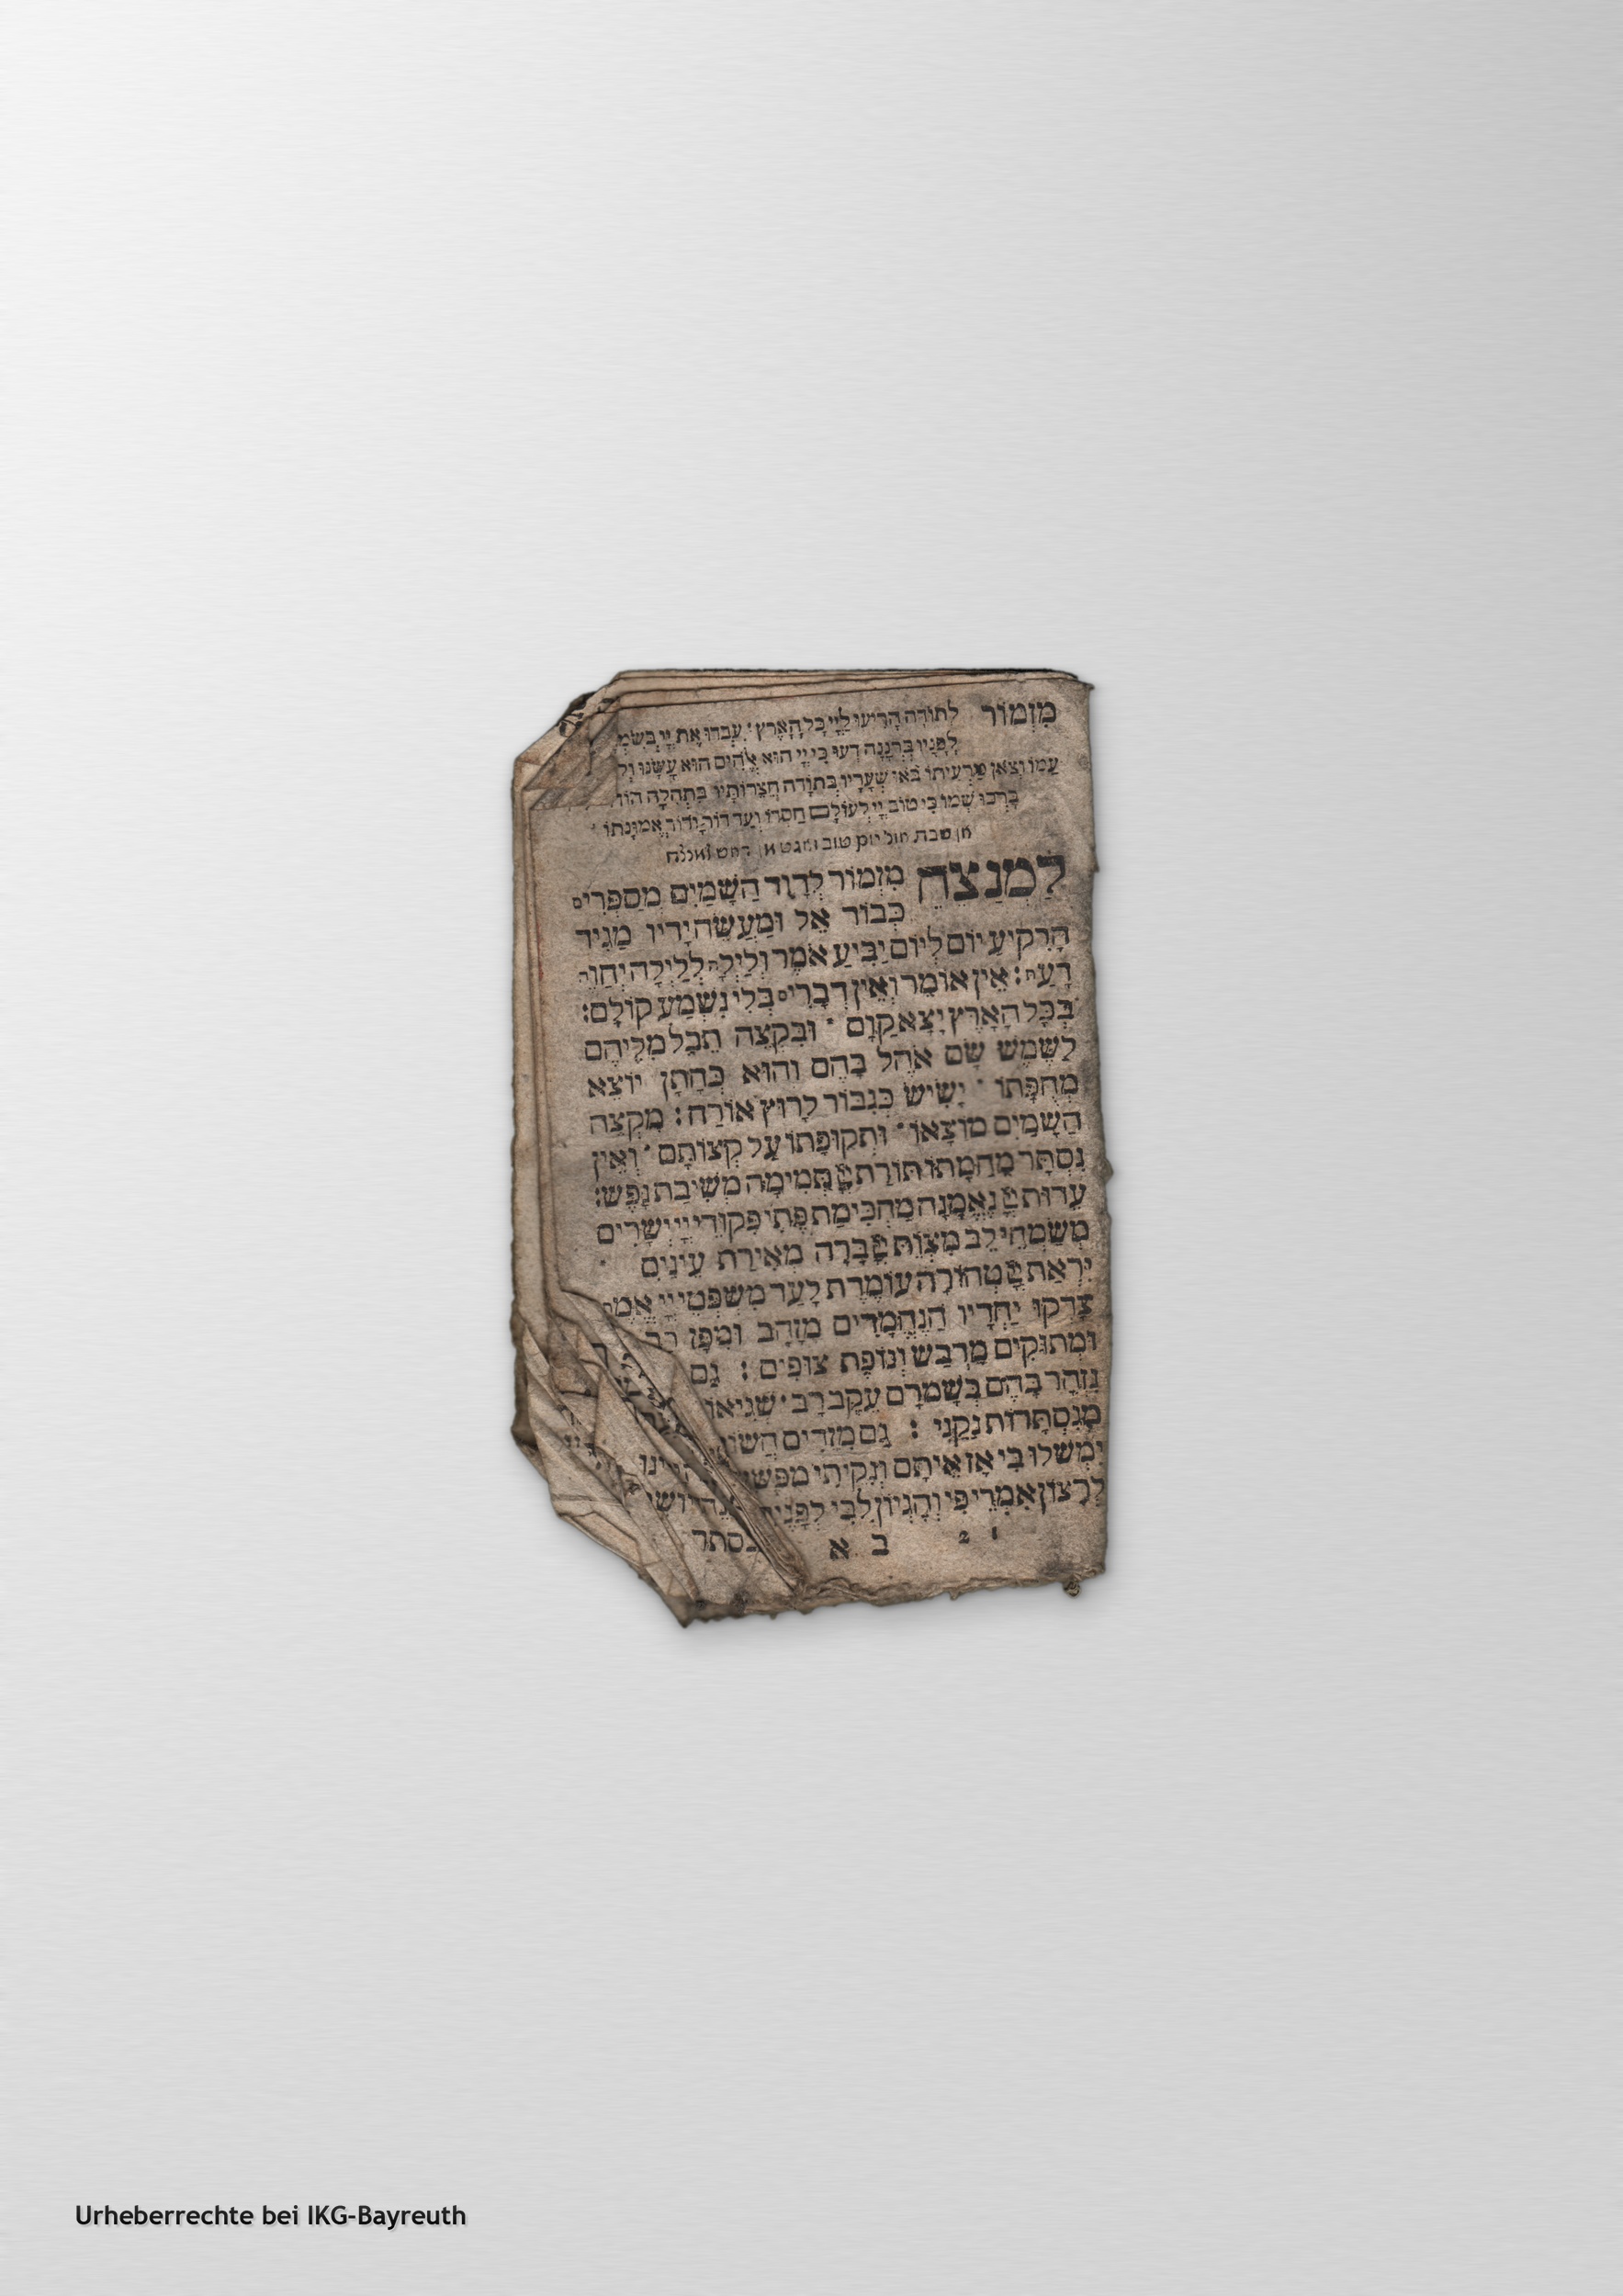 מִזְמוֹר לתורה הריעו לַיְיָ כל הארץ עבדו את יְיָ בשמ
לפניו ברננה דעו כי יְיָ הוא אלהים הוא עשנו ול
עמו וצאן מרעיתו באו שעריו בתודה חצרותיו בתהלה הוד
ברכו שמו כי טוב יְיָ לעולם חסדו ועד דור ודור אמונתו
אן שבת יום טוב זאגט אן
לַמְנַצֵחַ מִזְמוֹר לְדָוִד הַשָּׁמַיִם מְסַפְּרִים
כְּבוֹד אֵל וּמַעֲשֵׂה יָדָיו מַגִּיד
הָרָקִיעַ יוֹם לְיוֹם יַבִּיעַ אֹמֶר וְלַיְלָה לְלַיְלָה יְחַוֶּה
דָּעַת: אֵין אוֹמֶר וְאֵין דְּבָרִים בְּלִי נִשְׁמַע קוֹלָם:
בְּכָל הָאָרֶץ יָצָא קַוָּם וּבִקְצֵה תֵבֵל מִלֵּיהֶם
לַשֶּׁמֶשׁ שָׂם אֹהֶל בָּהֶם וְהוּא כְּחָתָן יוֹצֵא
מֵחֻפָּתוֹ יָשִׂישׂ כְּגִבּוֹר לָרוּץ אוֹרַח: מִקְצֵה
הַשָּׁמַיִם מוֹצָאוֹ וּתְקוּפָתוֹ עַל קְצוֹתָם וְאֵין
נִסְתָּר מֵחַמָּתוֹ תּוֹרַת יְיָ תְּמִימָה מְשִׁיבַת נָפֶשׁ:
עֵדוּת יְיָ נֶאֱמָנָה מַחְכִּימַת פֶּתִי פִּקּוּדֵי יְיָ יְשָׁרִים
מְשַׂמְּחֵי לֵב מִצְוַת יְיָ בָּרָה מְאִירַת עֵינַיִם
יִרְאַת יְיָ טְהוֹרָה עוֹמֶדֶת לָעַד מִשְׁפְּטֵי יְיָ אֱמֶת
צָדְקוּ יַחְדָּיו הַנֶּחֱמָדִים מִזָּהָב וּמִפָּז רב
וּמְתוּקִים מִדְּבַשׁ וְנוֹפֶת צוּפִים: גַּם
נִזְהָר בָּהֶם בְּשָׁמְרָם עֵקֶב רָב שְׁגִיאוֹ
מִנִּסְתָּרוֹת נַקֵּנִי: גַּם מִזֵּדִים חֲשׂוֹ
יִמְשְׁלוּ בִי אָז אֵיתָם וְנִקֵּיתִי מִפֶּשַׁ
לְרָצוֹן אִמְרֵי פִי וְהֶגְיוֹן לִבִּי לְפָנֶי
י 2 ב א בסתר
Urheberrechte bei IKG-Bayreuth